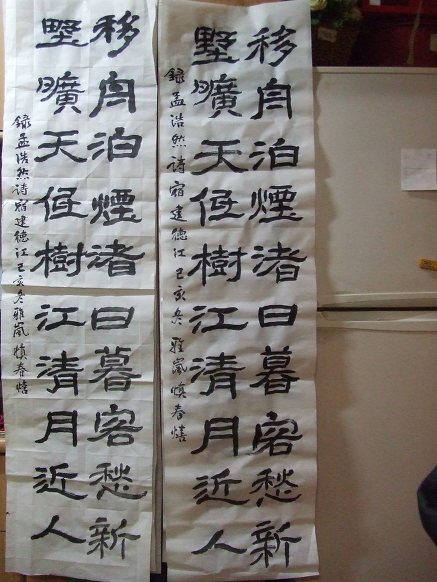 移舟泊煙渚日暮客愁新
墅曠天低樹江清月近人
録孟浩然诗宿建德江己亥冬雅嵐慎春熺
移舟泊煙渚日暮客愁新
墅曠天低樹江清月近人
録孟浩然诗宿建德江己亥冬雅嵐慎春熺